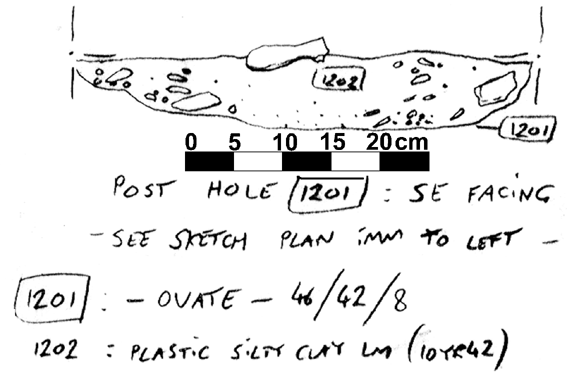 1202
1201
0 5 10 15 20cm
POST HOLE 1201 : SE FACING
- SEE SKETCH PLAN IMM TO LEFT -
1201 : - OVATE - 46/42/8
1202 : PLASTIC SILTY CLAY LM (10YR42)